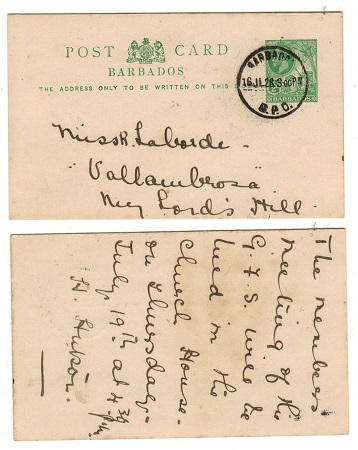 POST CARD
BARBADOS
THE ADDRESS ONLY TO BE WRITTEN ON THIS
BARBADOS
16 JL 28 3 00PM
G.P.O.
BARBADOS
Miss R. Laborde.
"Vallambrosa
My Lord's Hill.
The members
meeting of the
G.F.S. will be
held in the
Church House
on Thursday
July 19th at 4.30
pm.
H. Hutson.